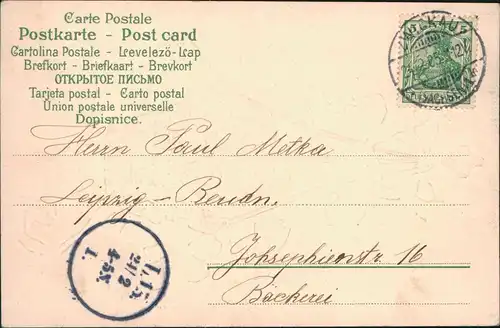 Carte Postale
Postkarte - Post card
Cartolina Postale - Levelező-Lap
Brefkort - Briefkaart - Brevkort
ОТКРЫТОЕ ПИСЬМО
Tarjeta postal - Carto postal
Union postale universelle
Dopisnice.
Herrn Paul Metka
Leipzig - Reudn.
Johsephienstr. 16
Bäckerei
L.13.
21/2
4-5N.
1.